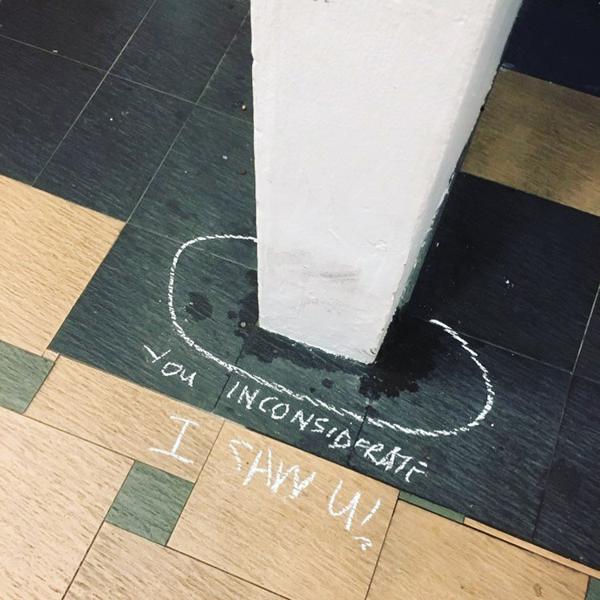 YOU INCONSIDERATE
I SAW U!